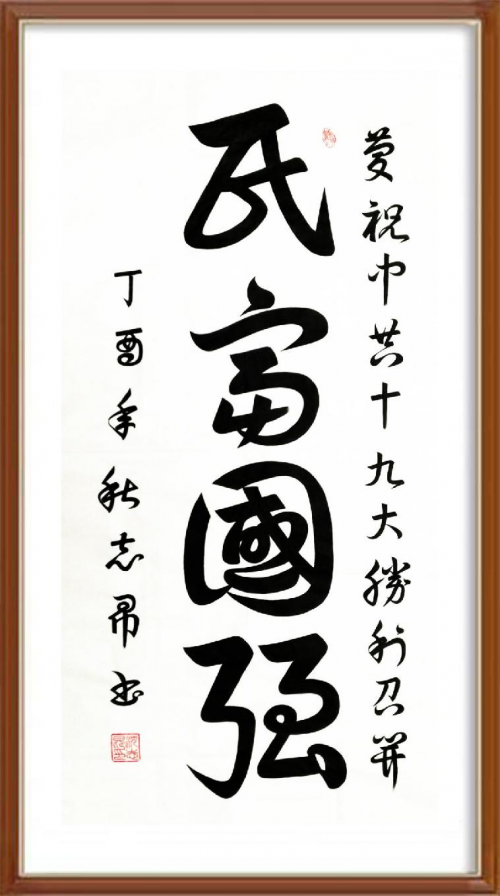 慶祝中共十九大勝利召開
民富國强
丁酉年秋志昂书